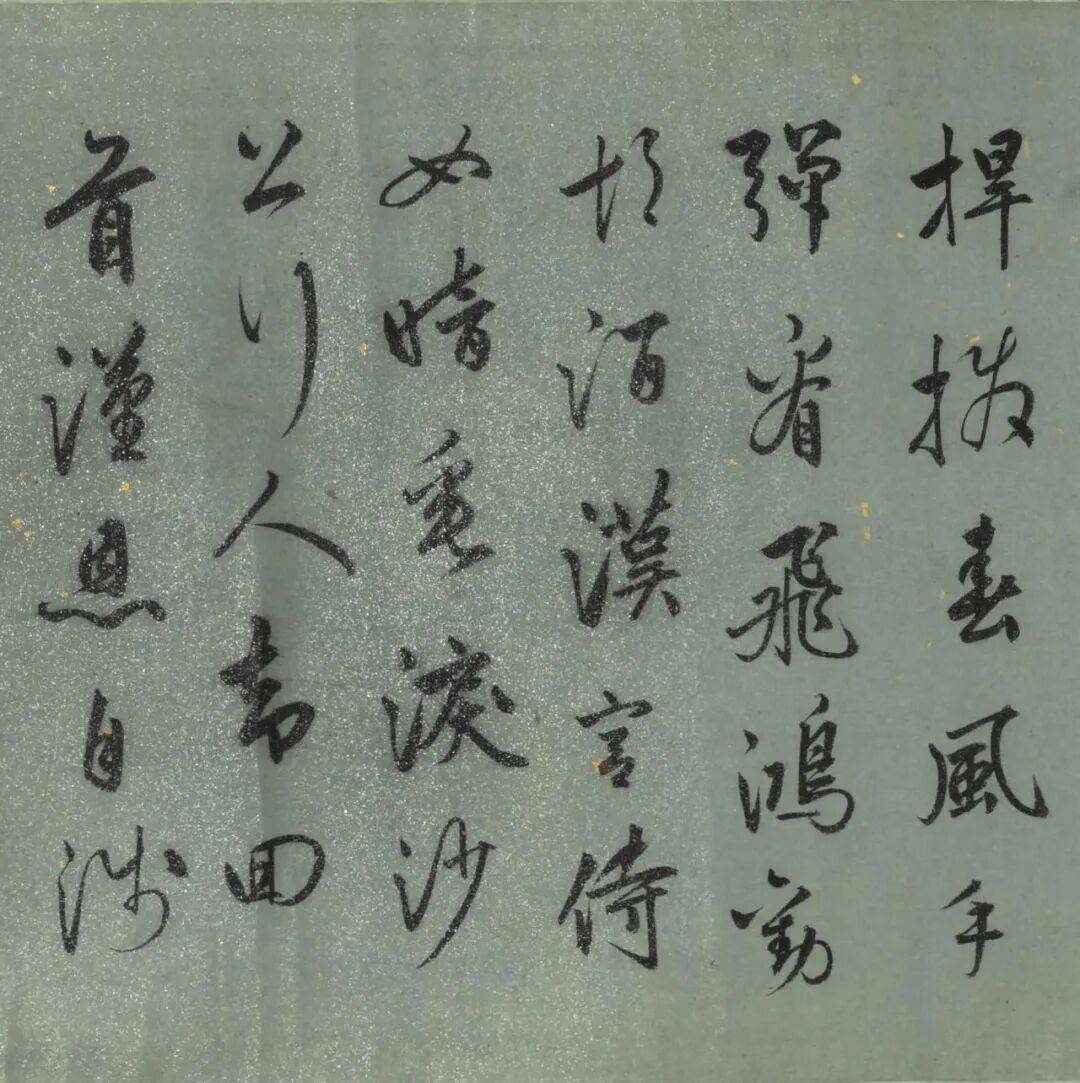 捍撥春風手
彈看飛鴻勸
胡酒漢宮侍
女暗垂淚沙
上行人却回
首漢恩自淺